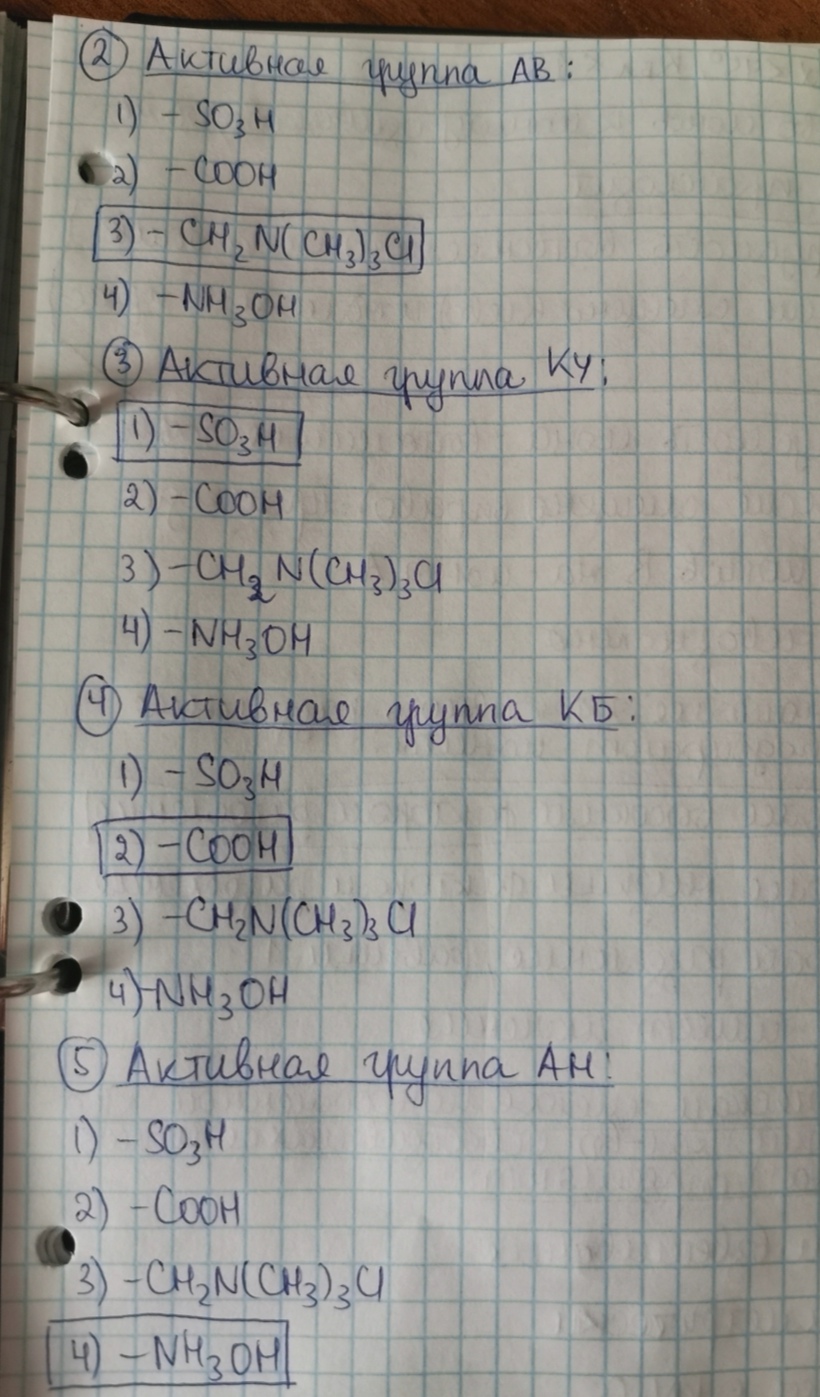 ② Активная группа АВ:
1) – SO₃H
2) – COOH
3) – CH₂N(CH₃)₃Cl
4) – NH₃OH
③ Активная группа КУ:
1) – SO₃H
2) – COOH
3) – CH₂N(CH₃)₃Cl
4) – NH₃OH
④ Активная группа КБ:
1) – SO₃H
2) – COOH
3) – CH₂N(CH₃)₃Cl
4) – NH₃OH
⑤ Активная группа АН:
1) – SO₃H
2) – COOH
3) – CH₂N(CH₃)₃Cl
4) – NH₃OH